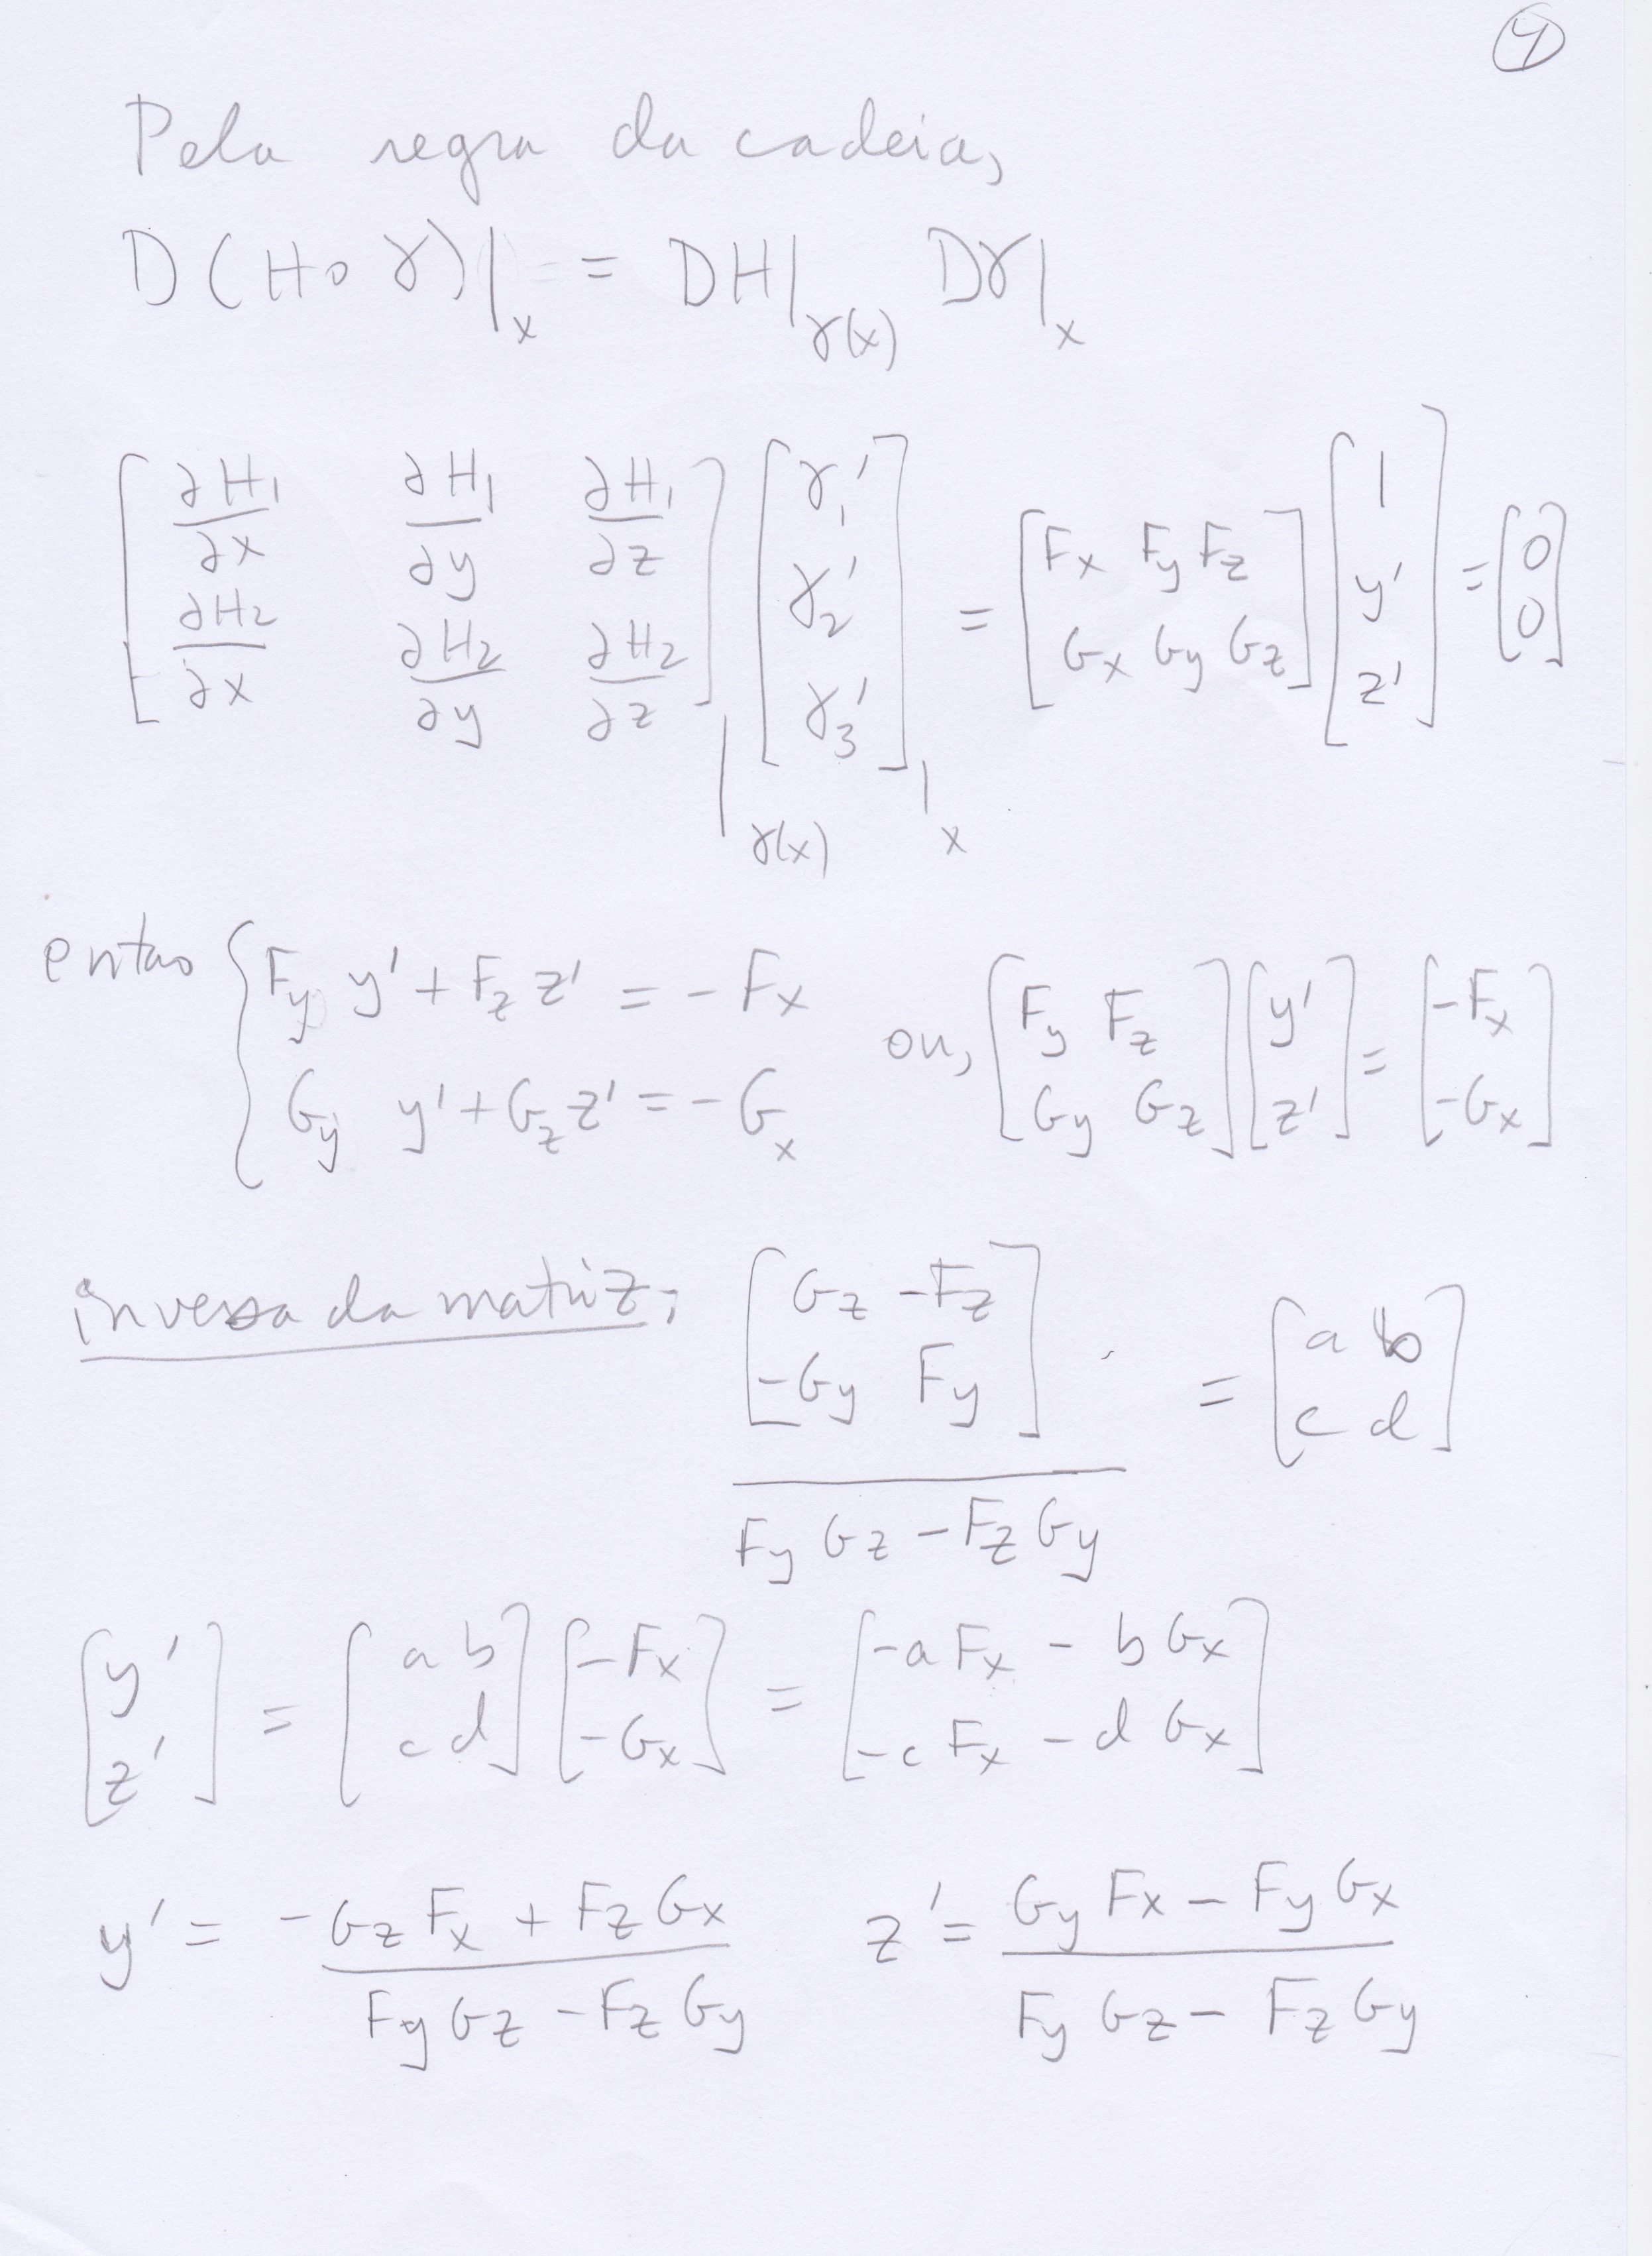 4
Pela regra da cadeia,
D(H∘γ)|_x = DH|_γ(x) Dγ|_x
[∂H₁/∂x ∂H₁/∂y ∂H₁/∂z; ∂H₂/∂x ∂H₂/∂y ∂H₂/∂z]|_γ(x) [γ₁'; γ₂'; γ₃']|_x = [Fx Fy Fz; Gx Gy Gz] [1; y'; z'] = [0; 0]
entao { Fy y' + Fz z' = -Fx ; Gy y' + Gz z' = -Gx ou, [Fy Fz; Gy Gz] [y'; z'] = [-Fx; -Gx]
inversa da matriz; [Gz -Fz; -Gy Fy] / (Fy Gz - Fz Gy) = [a b; c d]
[y'; z'] = [a b; c d] [-Fx; -Gx] = [-a Fx - b Gx; -c Fx - d Gx]
y' = (-Gz Fx + Fz Gx) / (Fy Gz - Fz Gy) z' = (Gy Fx - Fy Gx) / (Fy Gz - Fz Gy)